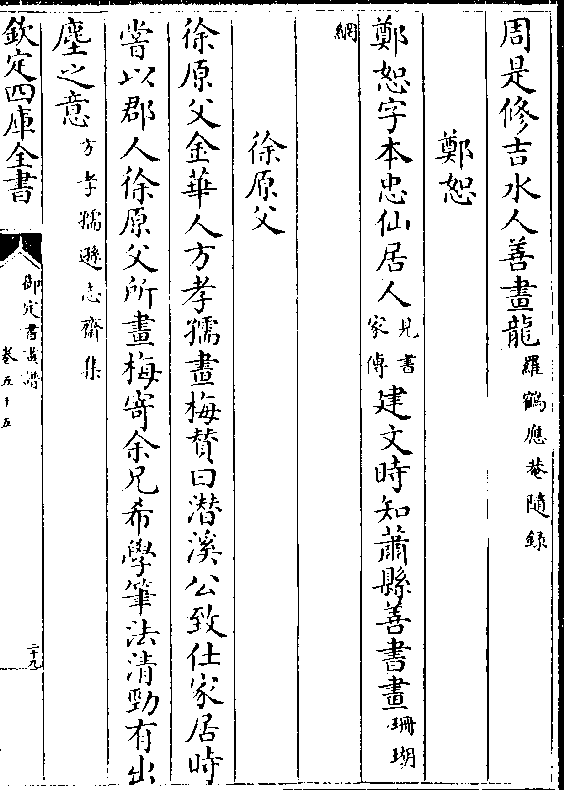 周是修吉水人善畫龍羅鶴應菴隨録
鄭恕
鄭恕字本忠仙居人見書家傳建文時知蕭縣善書畫珊瑚
網
徐原父
徐原父金華人方孝孺畫梅賛曰潛溪公致仕家居時
嘗以郡人徐原父所畫梅寄余兄希學筆法清勁有出
塵之意方孝孺遜志齋集
欽定四庫全書
御定書畫譜
卷五十五
二十九